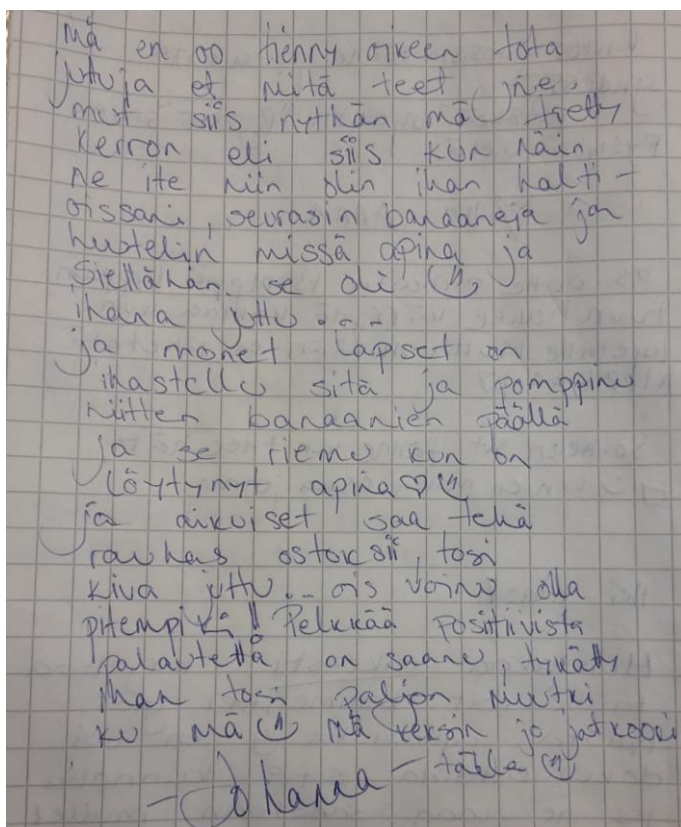 mä en oo tienny oikeen tota
juttuja et mitä teet jne.
mut siis nythän mä tietty
kerron eli siis kun näin
ne ite niin olin ihan halti-
oissani, seurasin banaaneja ja
huutelin missä apina ja
siellähän se oli
ihana juttu . . . .
ja monet lapset on
ihastellu sitä ja pomppinu
niitten banaanien päällä
ja se riemu kun on
löytynyt apina ♡
ja aikuiset saa tehä
rauhas ostoksii, tosi
kiva juttu.. ois voinu olla
pitempikä! Pelkkää positiivista
palautettä on saanu, tykätty
ihan tosi paljon muutki
ku mä mä keksin jo jatkooki
tälle
- Johanna -